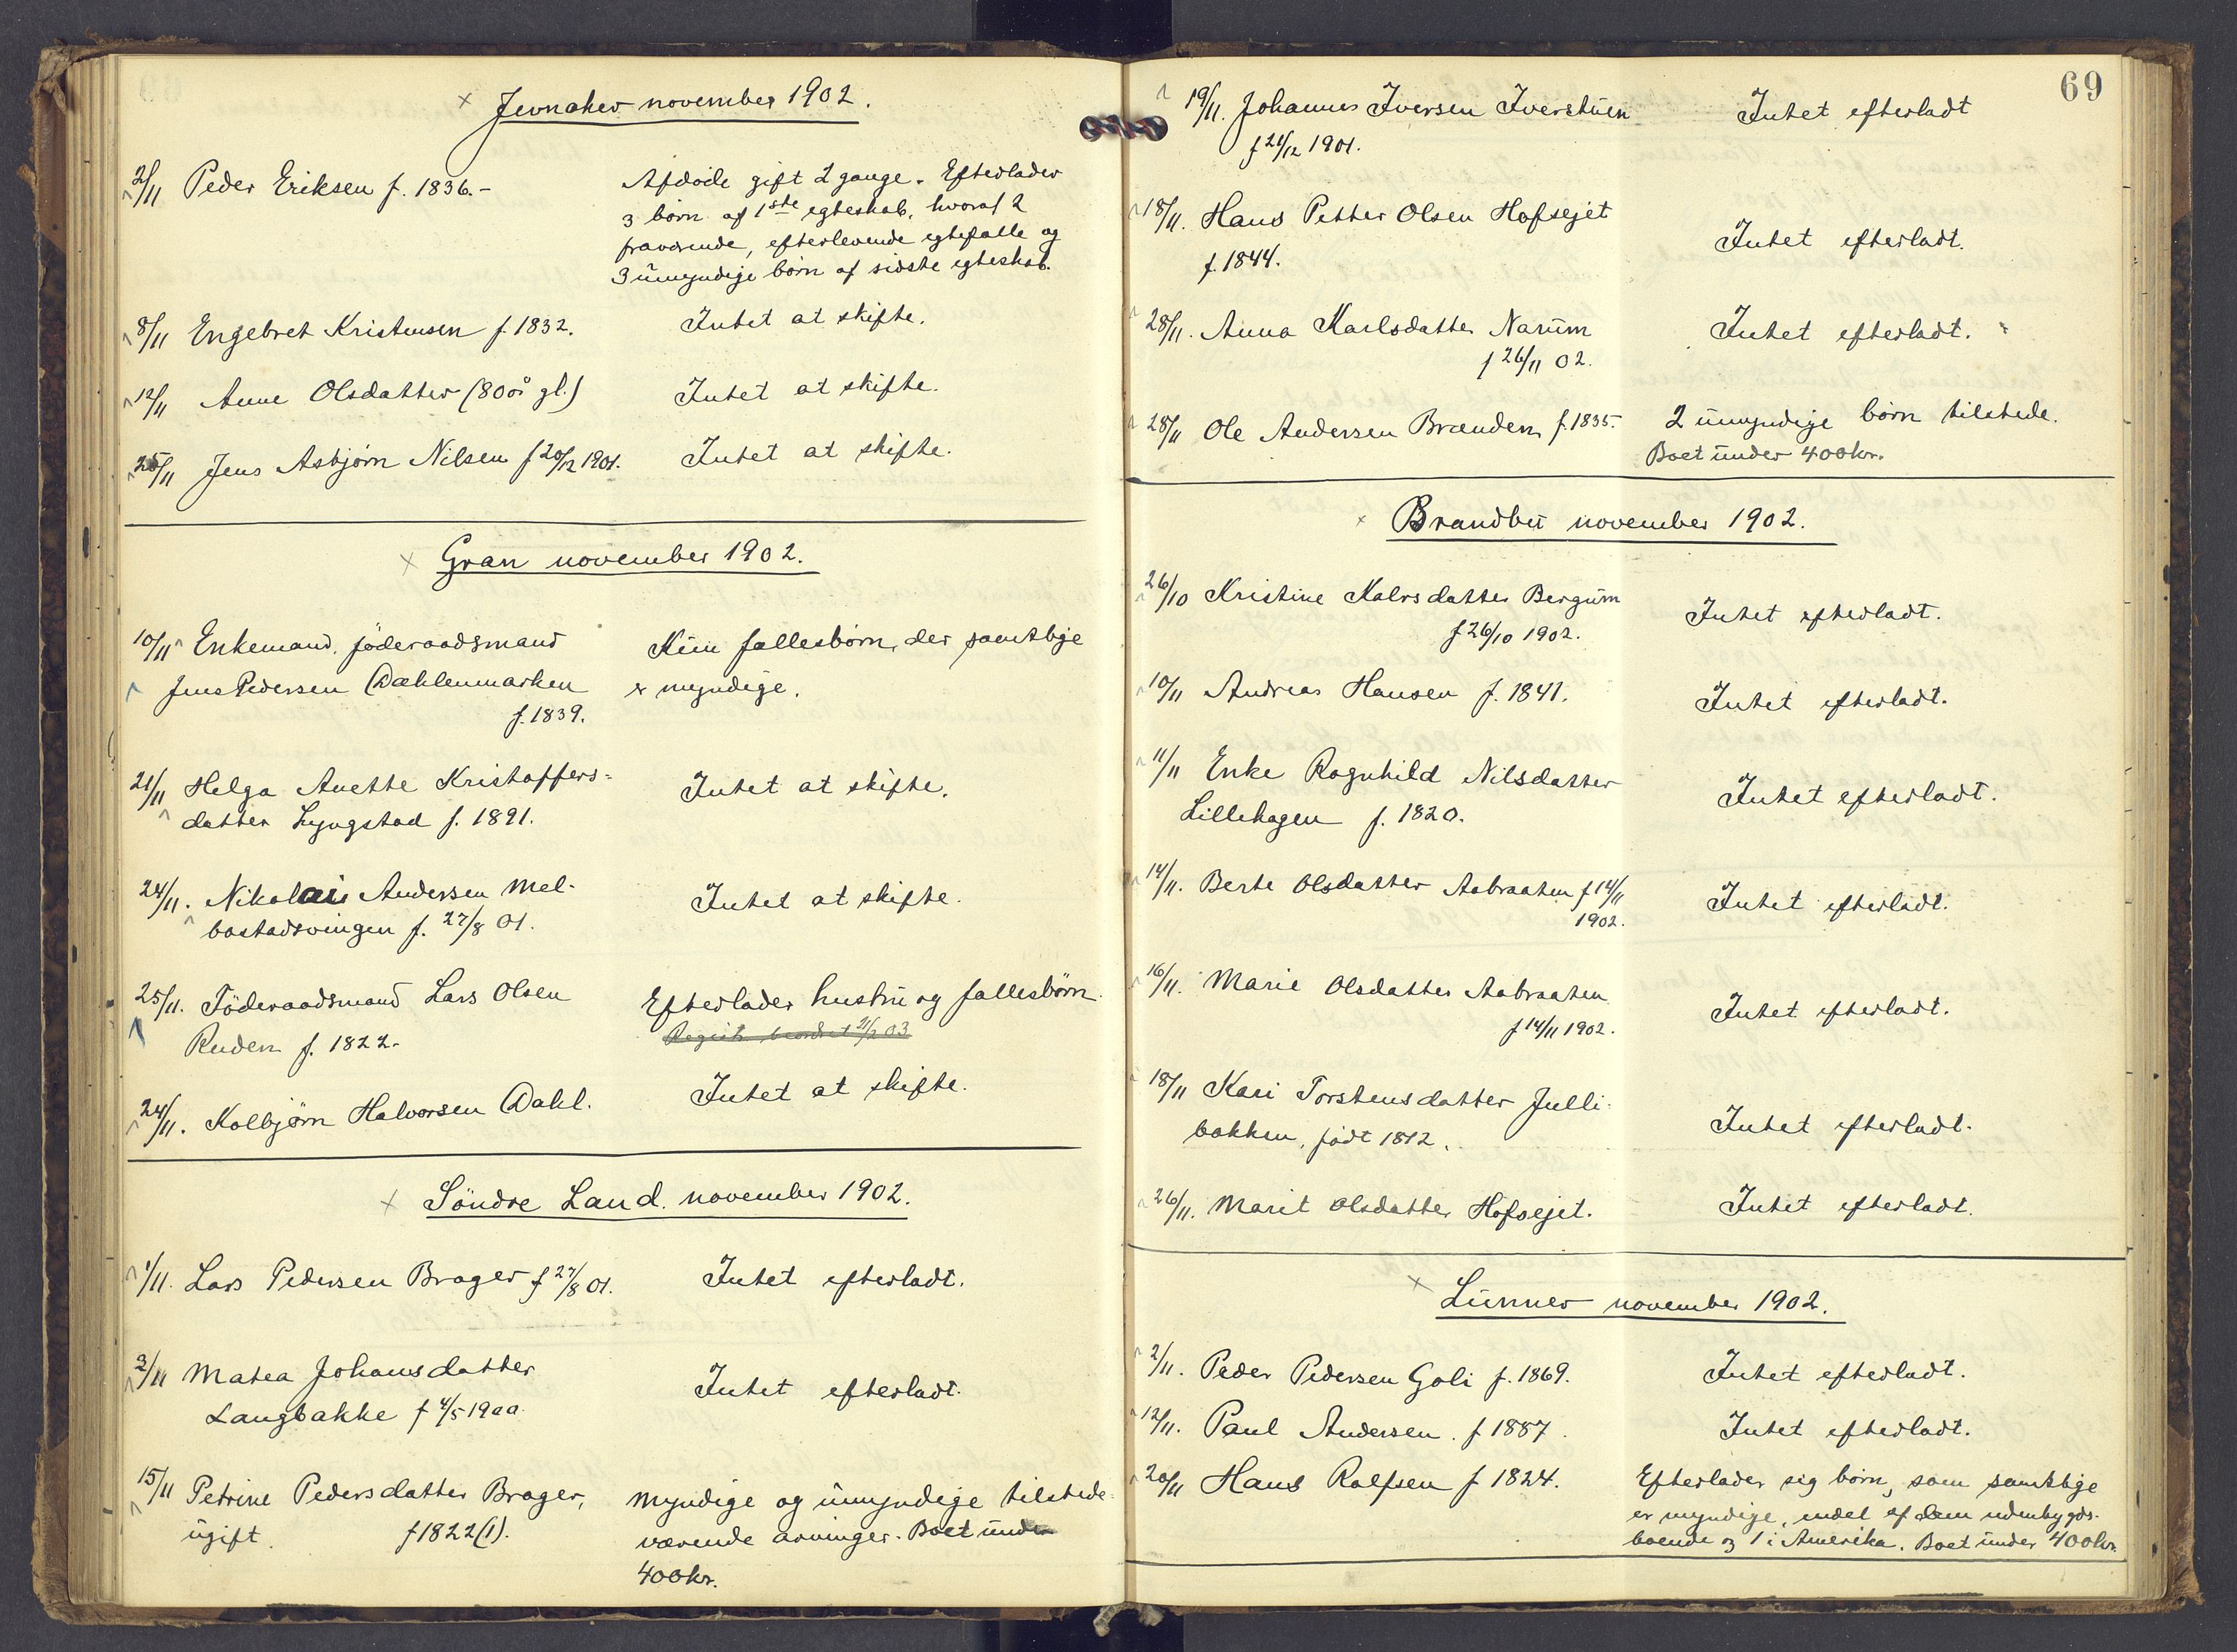 Jevnaker november 1902.
2/11 Peder Eriksen f. 1836.-
Afdøde gift 2 gange. Efterlader
3 børn af 1ste egteskab, hvoraf 2
fraværende, efterlevende egtefælle og
3 umyndige børn af sidste egteskab.
8/11 Engebret Kristensen f. 1832.
Intet at skifte.
12/11 Anne Olsdatter (80 år gl.)
Intet at skifte.
25/11 Jens Asbjørn Nilsen f 20/12 1901.
Intet at skifte.
Gran november 1902.
10/11 Enkemand, föderaadsmand
Jens Pedersen Dæhlenmarken
f. 1839.
Kun fællesbørn, der samtlige
er myndige.
21/11 Helga Anette Kristoffers=
datter Lyngstad f. 1891.
Intet at skifte.
24/11. Nikolai Andersen Mel-
bostadsvingen f. 27/8 01.
Intet at skifte.
25/11. Föderaadsmand Lars Olsen
Ruden f. 1822.
Efterlader hustru og fællesbørn.
24/11. Kolbjörn Halvorsen Dahl.
Intet at skifte.
Söndre Land. november 1902.
1/11. Lars Pedersen Brager f 27/8 01.
Intet efterladt.
3/11 Matea Johansdatter
Langbakke f 4/5 1900.
Intet efterladt.
15/11 Petrine Pedersdatter Brager,
ugift. f 1822(1).
Myndige og umyndige tilstede-
værende arvinger. Boet under
400 kr.
69
19/11. Johannes Iversen Iverstuen
f 21/12 1901.
Intet efterladt
18/11. Hans Petter Olsen Hofsejet
f. 1844.
Intet efterladt.
28/11. Anna Karlsdatter Narum
f 26/11 02.
Intet efterladt.
28/11 Ole Andersen Brænden f. 1835.
2 umyndige børn tilstede.
Boet under 400 kr.
Brandbu november 1902.
26/10 Kristine Kalrsdatter Bergum
f 26/10 1902.
Intet efterladt.
10/11 Andreas Hansen f. 1841.
Intet efterladt.
11/11 Enke Ragnhild Nilsdatter
Lillehagen f. 1820.
Intet efterladt.
14/11. Berte Olsdatter Aabraaten f 14/11
1902.
Intet efterladt.
16/11. Marie Olsdatter Aabraaten
f 14/11 1902.
Intet efterladt.
18/11 Kari Torstensdatter Julli-
bakken, født 1812.
Intet efterladt.
26/11. Marit Olsdatter Hofsejet.
Intet efterladt.
Lunner november 1902.
2/11. Peder Pedersen Goli f. 1869.
Intet efterladt.
12/11. Paul Andersen. f 1887.
Intet efterladt.
20/11 Hans Rolfsen f 1824.
Efterlader sig børn, som samtlige
er myndige, endel af dem udenbygds-
boende og 1 i Amerika. Boet under 400 kr.